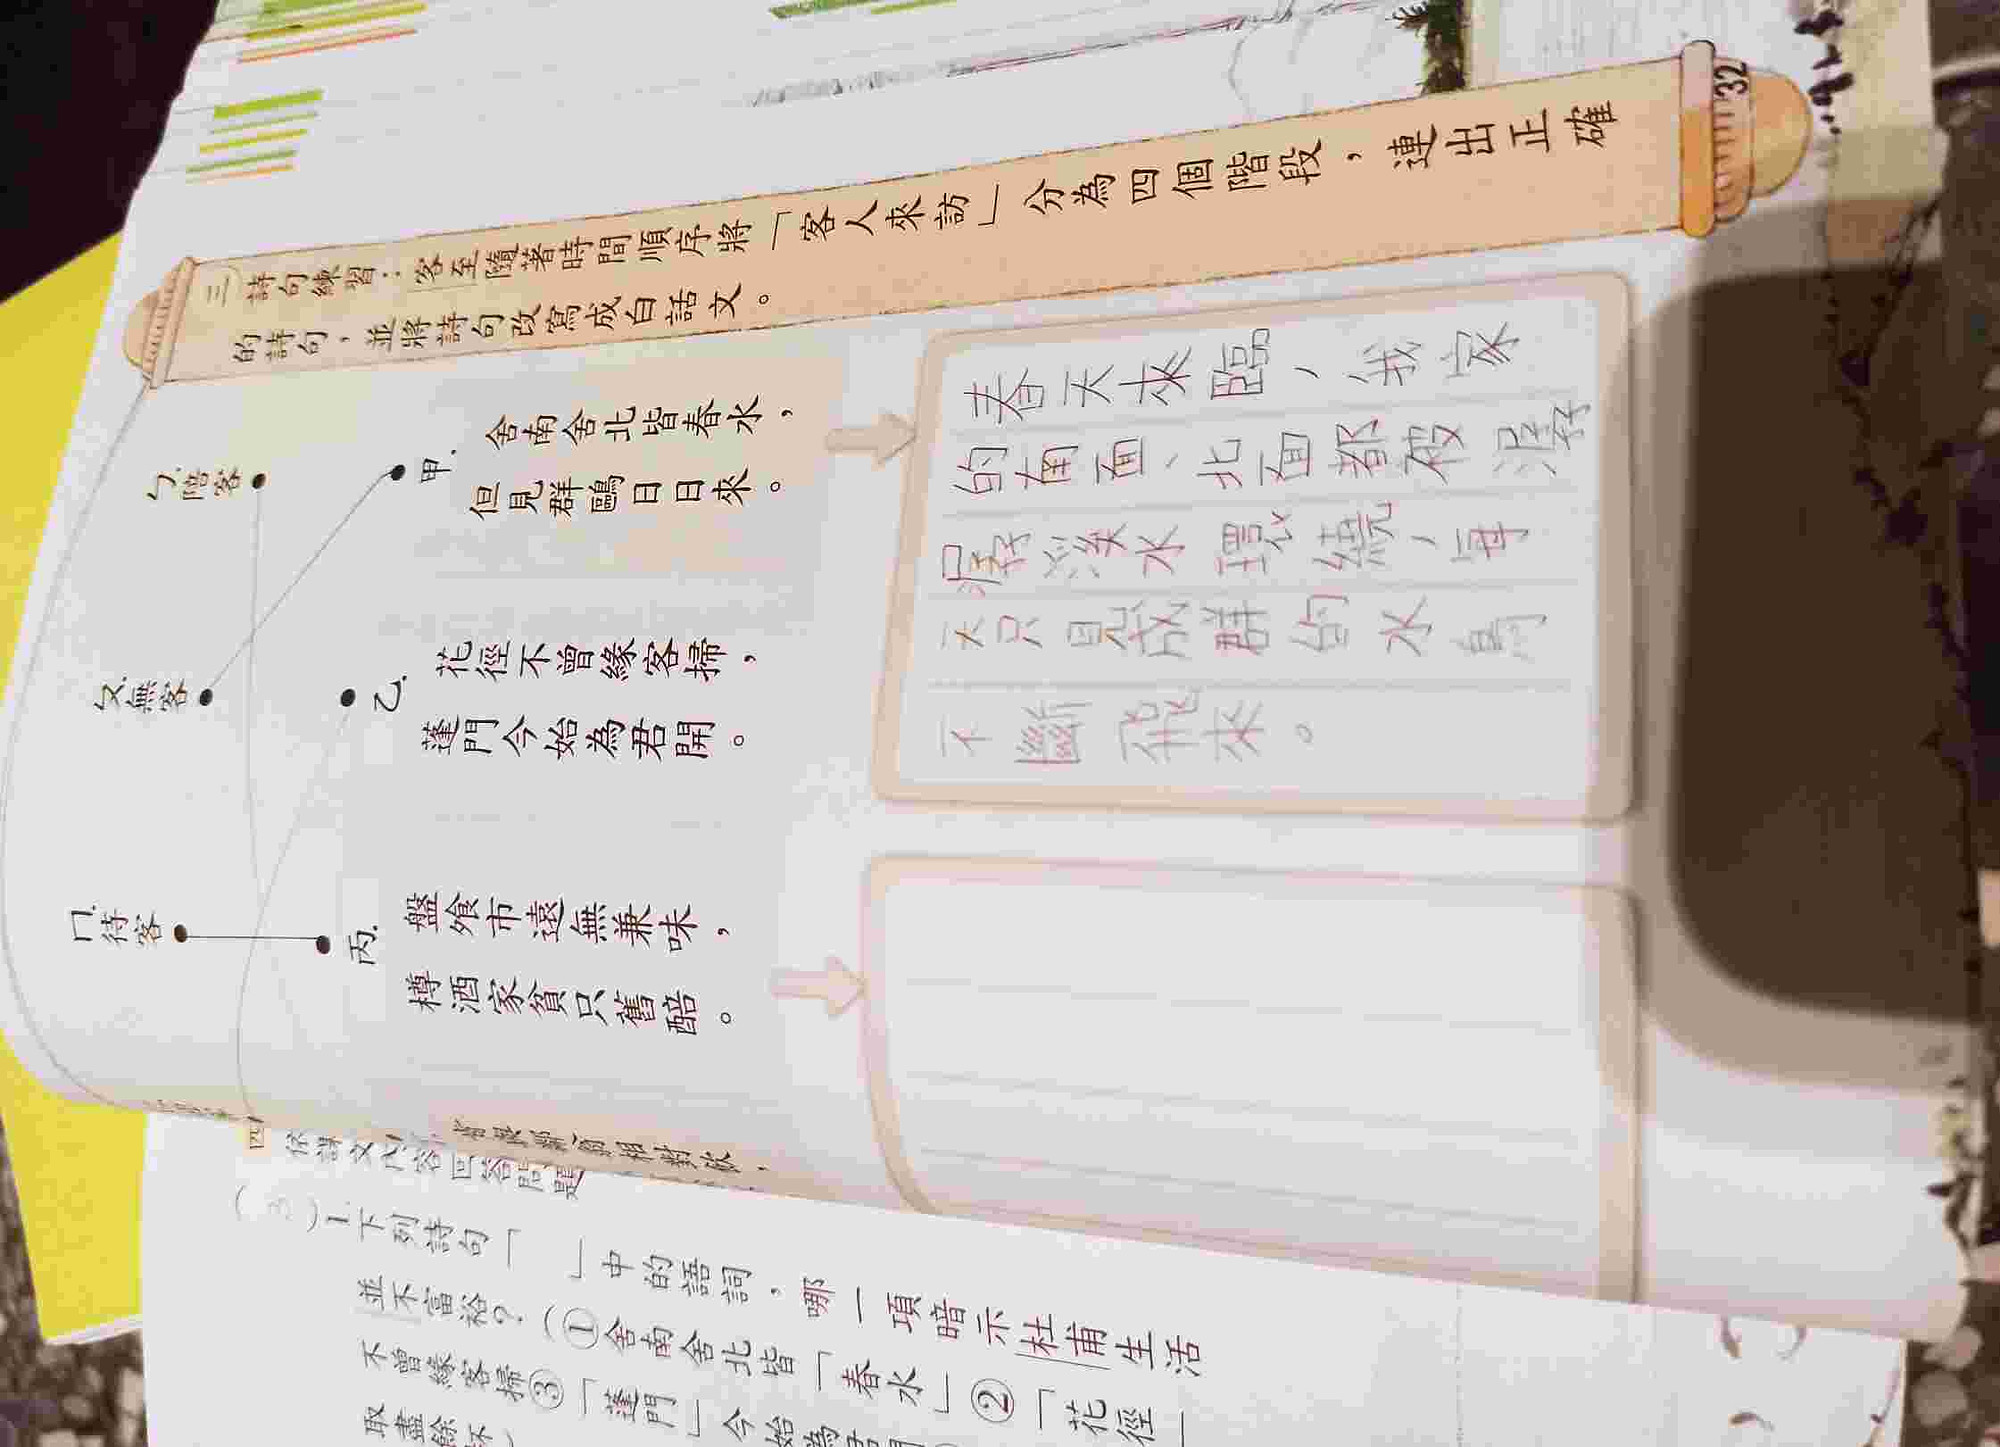 32
三 詩句練習：客至隨著時間順序將「客人來訪」分為四個階段，連出正確
的詩句，並將詩句改寫成白話文。
ㄅ.陪客
ㄆ.無客
ㄇ.待客
甲.
舍南舍北皆春水，
但見群鷗日日來。
乙.
花徑不曾緣客掃，
蓬門今始為君開。
丙.
盤飧市遠無兼味，
樽酒家貧只舊醅。
春天來臨，我家
的南面、北面都被潺
潺溪水環繞，每
天只見成群的水鳥
不斷飛來。
四 依課文內容回答問題
(3) 1.下列詩句「 」中的語詞，哪一項暗示杜甫生活
並不富裕？(①舍南舍北皆「春水」②「花徑」
不曾緣客掃③「蓬門」今始為君開
取盡餘杯